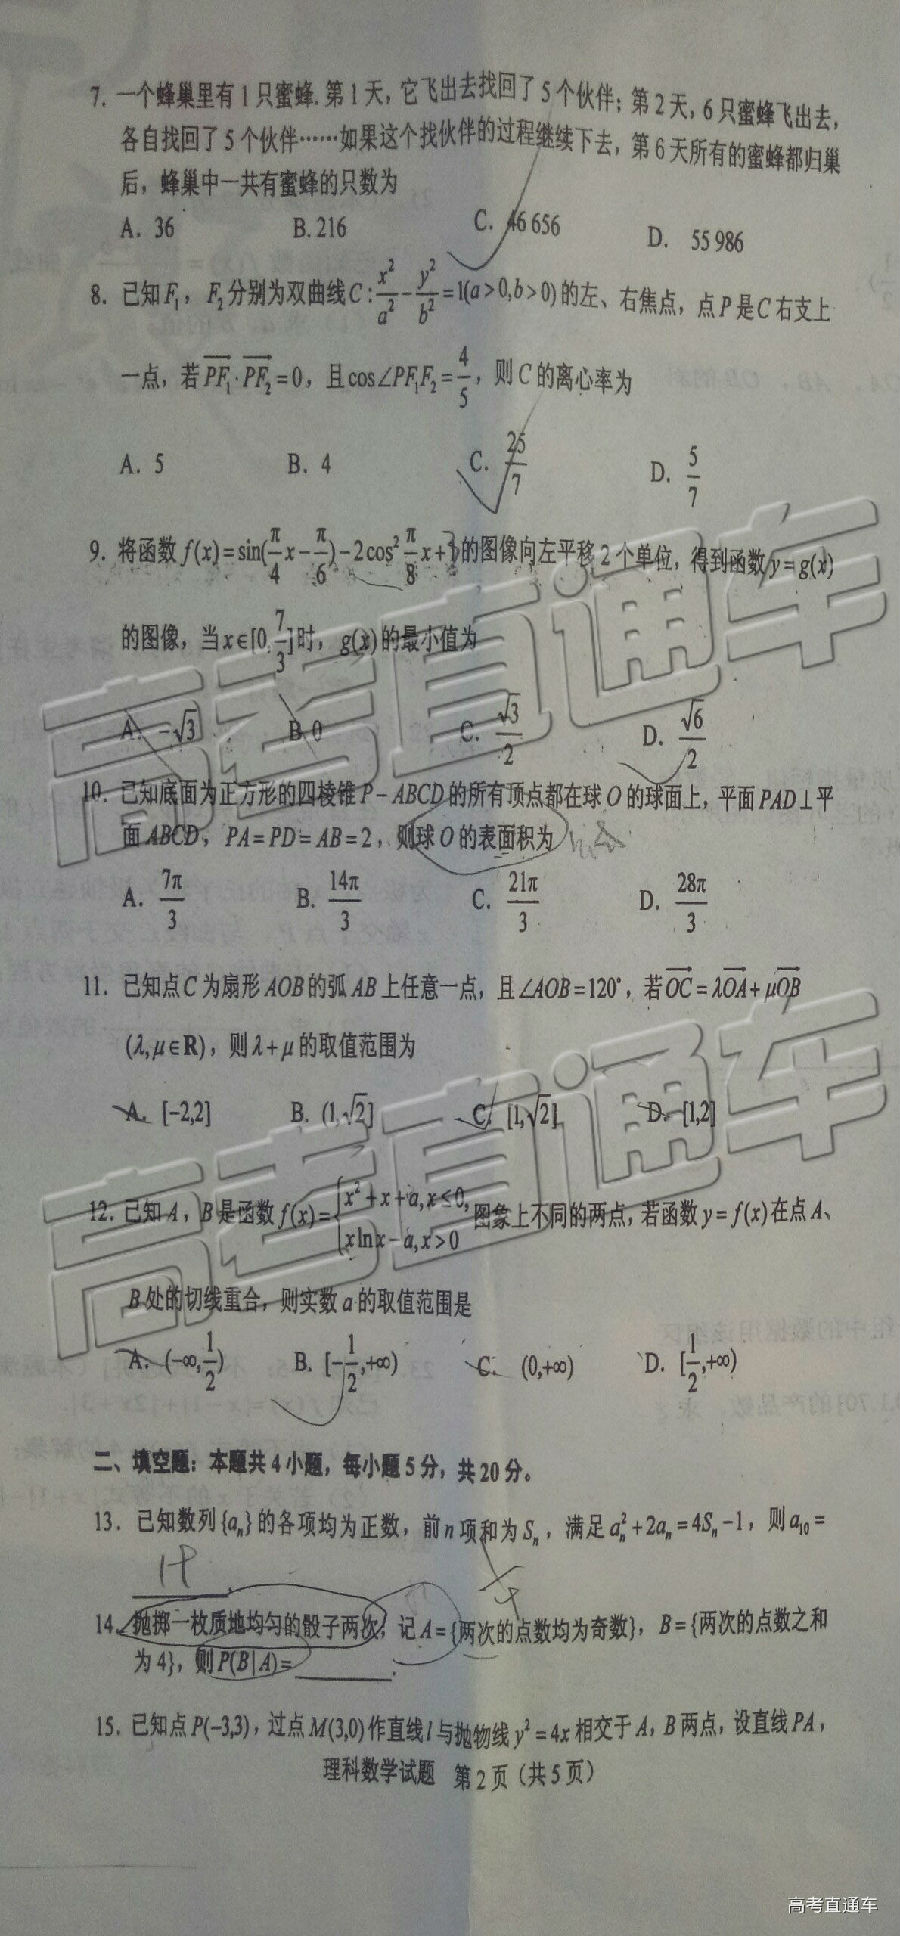 7. 一个蜂巢里有1只蜜蜂.第1天，它飞出去找回了5个伙伴；第2天，6只蜜蜂飞出去，
各自找回了5个伙伴……如果这个找伙伴的过程继续下去，第6天所有的蜜蜂都归巢
后，蜂巢中一共有蜜蜂的只数为
A. 36 B. 216 C. 46 656 D. 55 986
8. 已知F₁，F₂分别为双曲线C:x²/a²-y²/b²=1(a>0,b>0)的左、右焦点，点P是C右支上
一点，若PF₁·PF₂=0，且cos∠PF₁F₂=4/5，则C的离心率为
A. 5 B. 4 C. 25/7 D. 5/7
9. 将函数f(x)=sin(π/4 x-π/6)-2cos²π/8 x+1的图像向左平移2个单位，得到函数y=g(x)
的图像，当x∈[0,7/3]时，g(x)的最小值为
A. -√3 B. 0 C. √3/2 D. √6/2
10. 已知底面为正方形的四棱锥P-ABCD的所有顶点都在球O的球面上，平面PAD⊥平
面ABCD，PA=PD=AB=2，则球O的表面积为
A. 7π/3 B. 14π/3 C. 21π/3 D. 28π/3
11. 已知点C为扇形AOB的弧AB上任意一点，且∠AOB=120°，若OC=λOA+μOB
(λ,μ∈R)，则λ+μ的取值范围为
A. [-2,2] B. (1,√2] C. [1,√2] D. [1,2]
12. 已知A，B是函数f(x)={x²+x+a,x≤0, xlnx-a,x>0 图象上不同的两点，若函数y=f(x)在点A、
B处的切线重合，则实数a的取值范围是
A. (-∞,1/2) B. [-1/2,+∞) C. (0,+∞) D. [1/2,+∞)
二、填空题：本题共4小题，每小题5分，共20分。
13. 已知数列{aₙ}的各项均为正数，前n项和为Sₙ，满足aₙ²+2aₙ=4Sₙ-1，则a₁₀=
______.
14. 抛掷一枚质地均匀的骰子两次，记A={两次的点数均为奇数}，B={两次的点数之和
为4}，则P(B|A)=______.
15. 已知点P(-3,3)，过点M(3,0)作直线l与抛物线y²=4x相交于A，B两点，设直线PA，
理科数学试题 第2页（共5页）
高考直通车
高考直通车
高考直通车